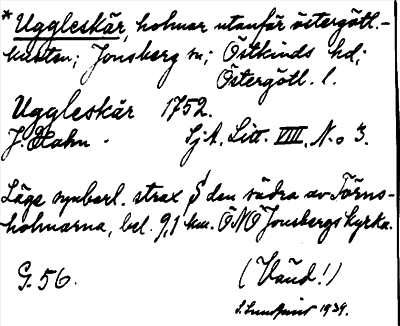 * Uggleskär, holmar utanför östergötl.-
kusten; Jonsberg sn; Östkinds hd;
Östergötl. l.
Uggleskär 1752.
J. Hahn. Sj A. Litt. VIII, No 3.
Läge synbarl. strax S den södra av Törns-
holmarna, bel. 9,1 km. ÖNÖ Jonsbergs kyrka.
G. 56. (Vänd!)
1939.